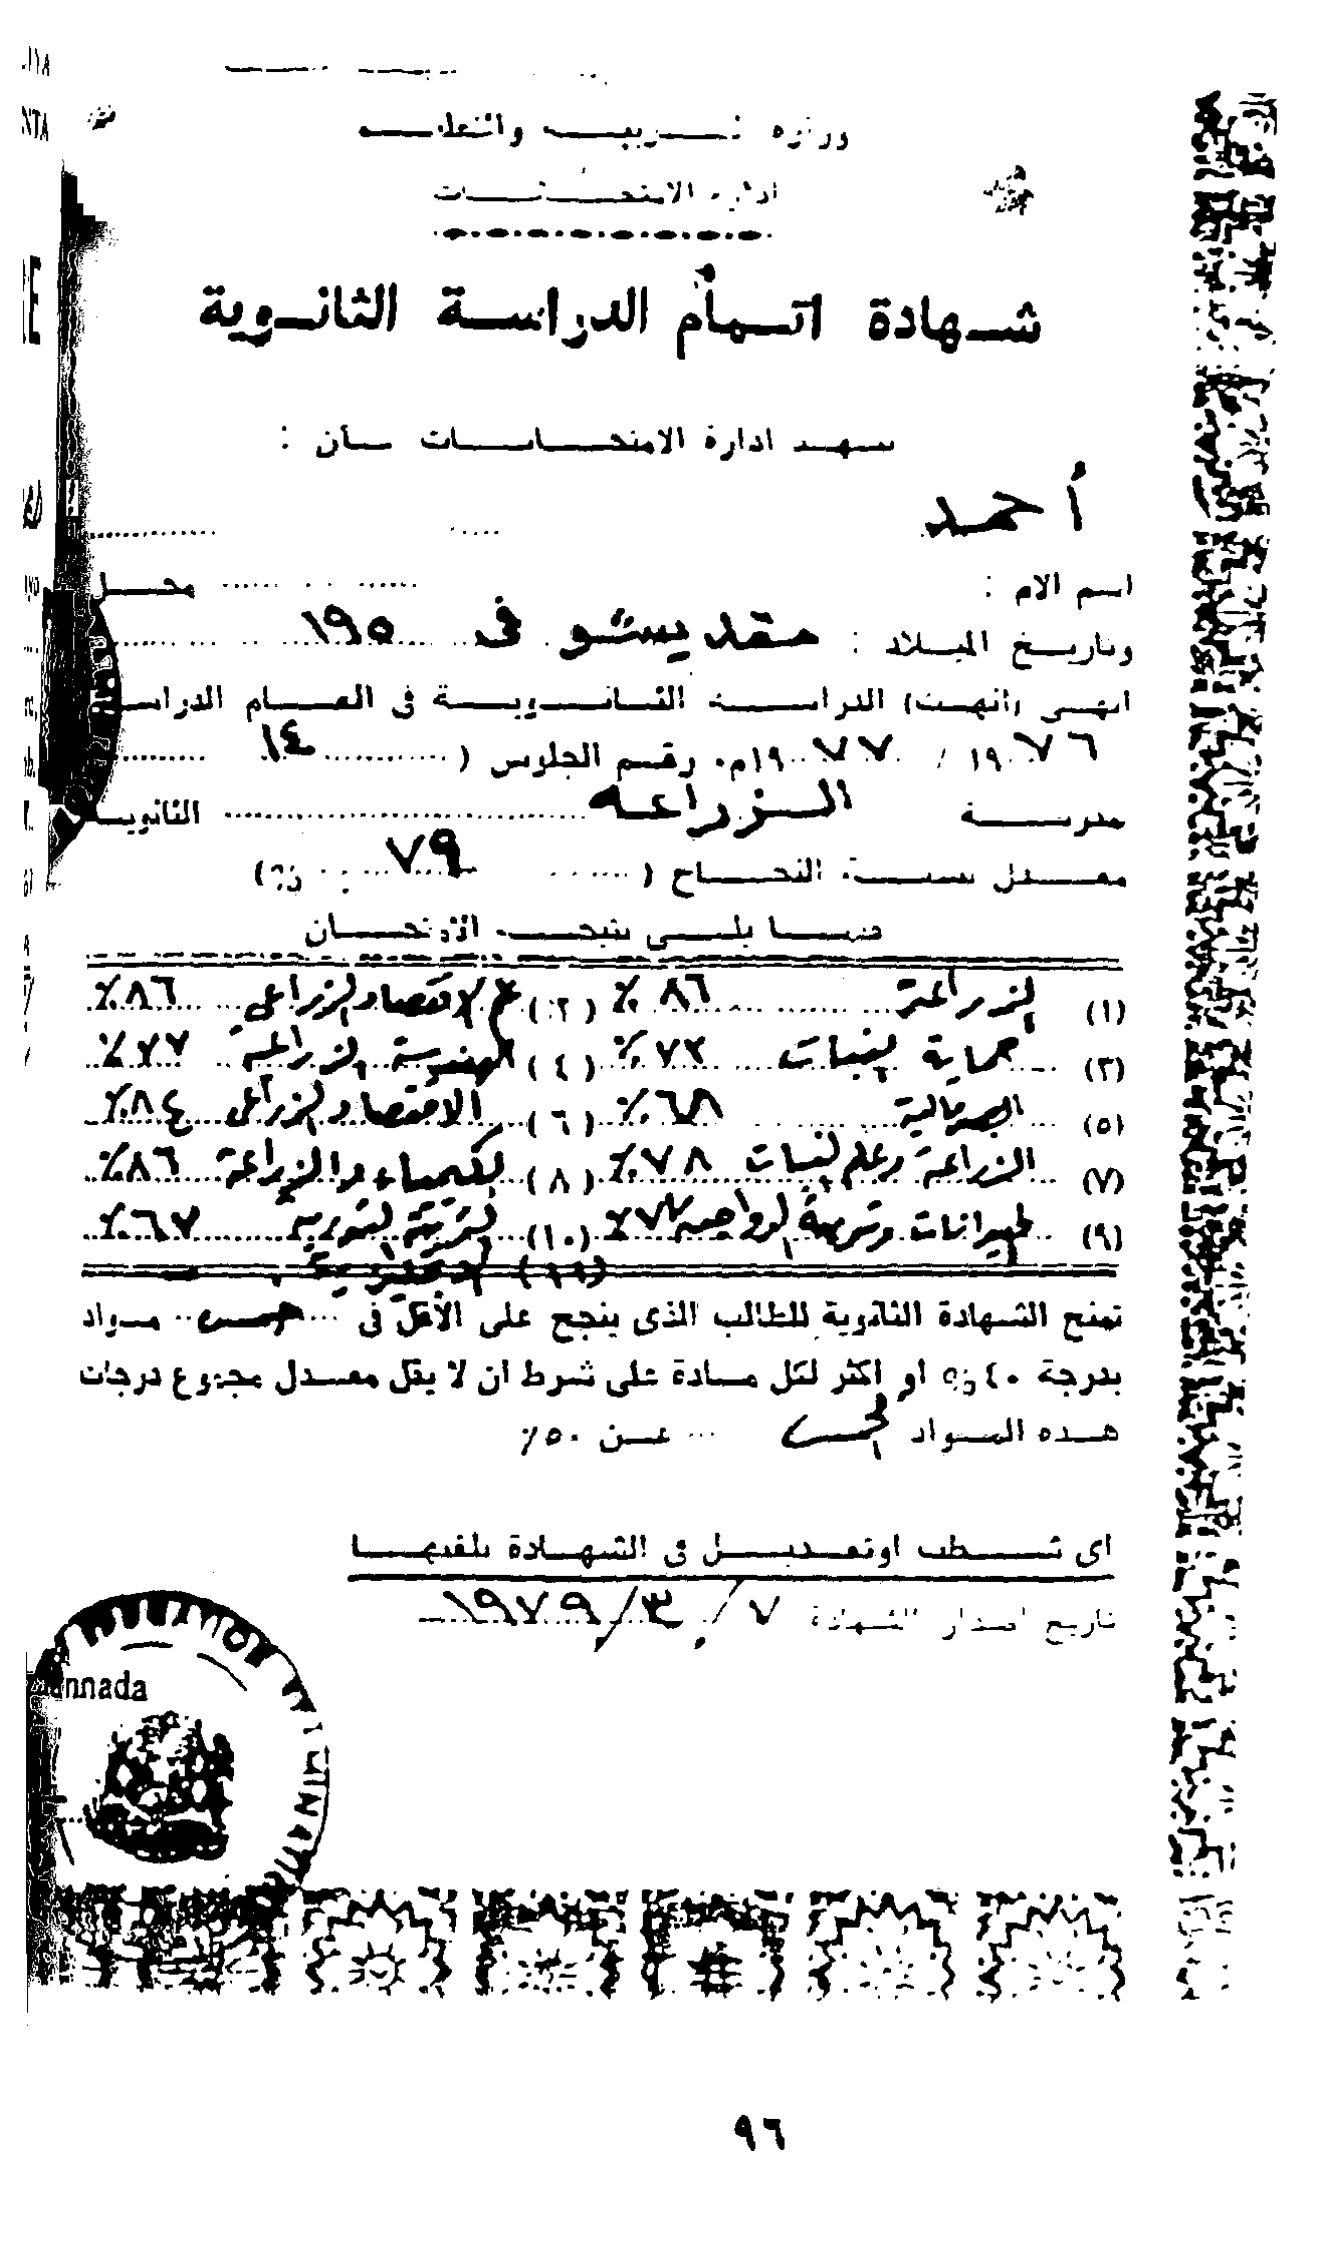 وزارة التربية والتعليم
ادارة الامتحانات
شهادة اتمام الدراسة الثانوية
تشهد ادارة الامتحانات بأن :
أحمد
اسم الام : محل
وتاريخ الميلاد : مقديشو فى ١٩٥
انهى (انهت) الدراسة الثانوية فى العام الدراسى
١٩٧٦ / ١٩٧٧م. رقم الجلوس ( ١٤
مدرسة الزراعه الثانوية
معدل نسبة النجاح ( ٧٩ ٪)
فيما يلى نتيجة الامتحان
(١) الزراعة ٨٦ ٪ (٢) الاقتصاد الزراعي ٨٦٪
(٣) حماية النبات ٧٢ ٪ (٤) الهندسة الزراعية ٧٧٪
(٥) الصومالية ٦٨ ٪ (٦) الاقتصاد الزراعي ٨٤٪
(٧) الزراعة وعلم النبات ٧٨ ٪ (٨) الكيمياء والزراعة ٨٦٪
(٩) وتربية الدواجن (١٠) التربية الثورية ٦٧٪
(١١) انجليزية
تمنح الشهادة الثانوية للطالب الذى ينجح على الأقل فى خمس مواد
بدرجة ٤٠٪ او اكثر لكل مادة على شرط ان لا يقل معدل مجموع درجات
هذه المواد الخمس عن ٥٠٪
اى شطب اوتعديل فى الشهادة يلغيها
تاريخ اصدار الشهادة ٧/٣/١٩٧٩
annada
٩٦